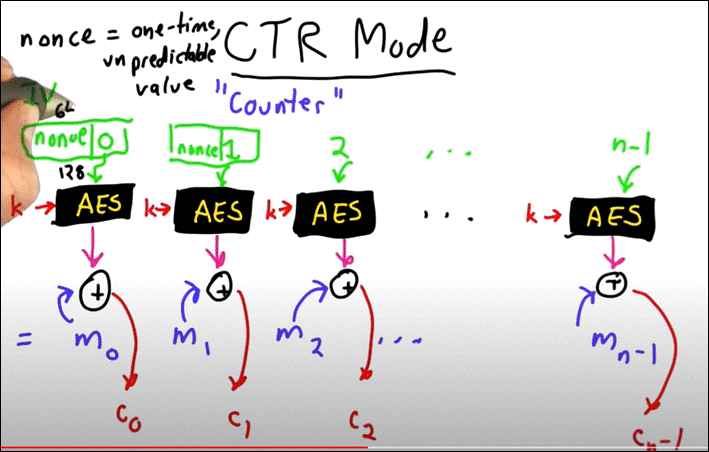 nonce = one-time, CTR Mode
unpredictable
value "Counter"
IV 64
nonce 0 nonce 1 2 ... n-1
128
k AES k AES k AES ... k AES
+ + + +
= m0 m1 m2 ... mn-1
c0 c1 c2 cn-1